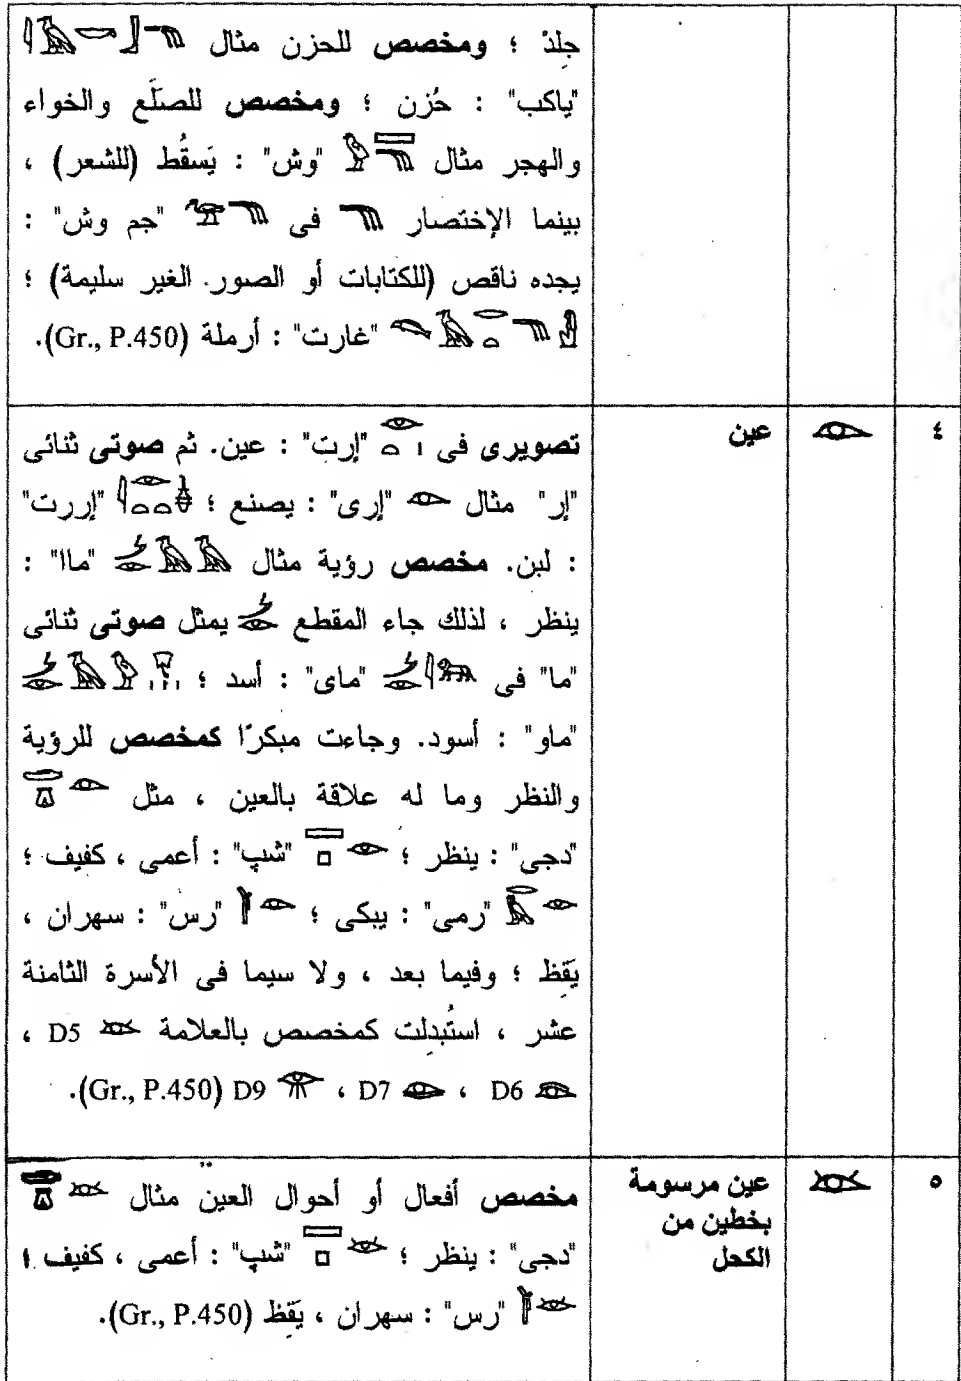 جلدْ ؛ ومخصص للحزن مثال 𓇋𓅓𓎡𓃀𓁸
"ياكب" : حُزن ؛ ومخصص للصلَع والخواء
والهجر مثال 𓅱𓈙𓁸 "وش" : يَسقُط (للشعر) ،
بينما الإختصار 𓁸 فى 𓅠𓁸 "جم وش" :
يجده ناقص (للكتابات أو الصور الغير سليمة) ؛
"غارت" : أرملة (Gr., P.450).
٤
𓁹
عين
تصويرى فى 𓁹𓏏𓏤 "إرت" : عين. ثم صوتى ثنائى
"إر" مثال 𓁹 "إرى" : يصنع ؛ "إررت"
: لبن. مخصص رؤية مثال 𓌳𓁹𓄿𓄿 "ماا" :
ينظر ، لذلك جاء المقطع 𓌳𓁹 يمثل صوتى ثنائى
"ما" فى 𓌳𓁹𓇋𓃬 "ماى" : أسد ؛
"ماو" : أسود. وجاءت مبكرًا كمخصص للرؤية
والنظر وما له علاقة بالعين ، مثل 𓂧𓎼𓁹
"دجى" : ينظر ؛ 𓈙𓊪𓁹 "شپ" : أعمى ، كفيف ؛
𓂋𓅓𓁹 "رمى" : يبكى ؛ 𓁹 "رس" : سهران ،
يَقِظ ؛ وفيما بعد ، ولا سيما فى الأسرة الثامنة
عشر ، استُبدِلت كمخصص بالعلامة 𓁺 D5 ،
D6 𓁻 ، D7 𓁼 ، D9 𓁿 (Gr., P.450).
٥
𓁺
عين مرسومة
بخطين من
الكحل
مخصص أفعال أو أحوال العين مثال 𓂧𓎼𓁺
"دجى" : ينظر ؛ 𓈙𓊪𓁺 "شپ" : أعمى ، كفيف ؛
𓁺 "رس" : سهران ، يَقِظ (Gr., P.450).